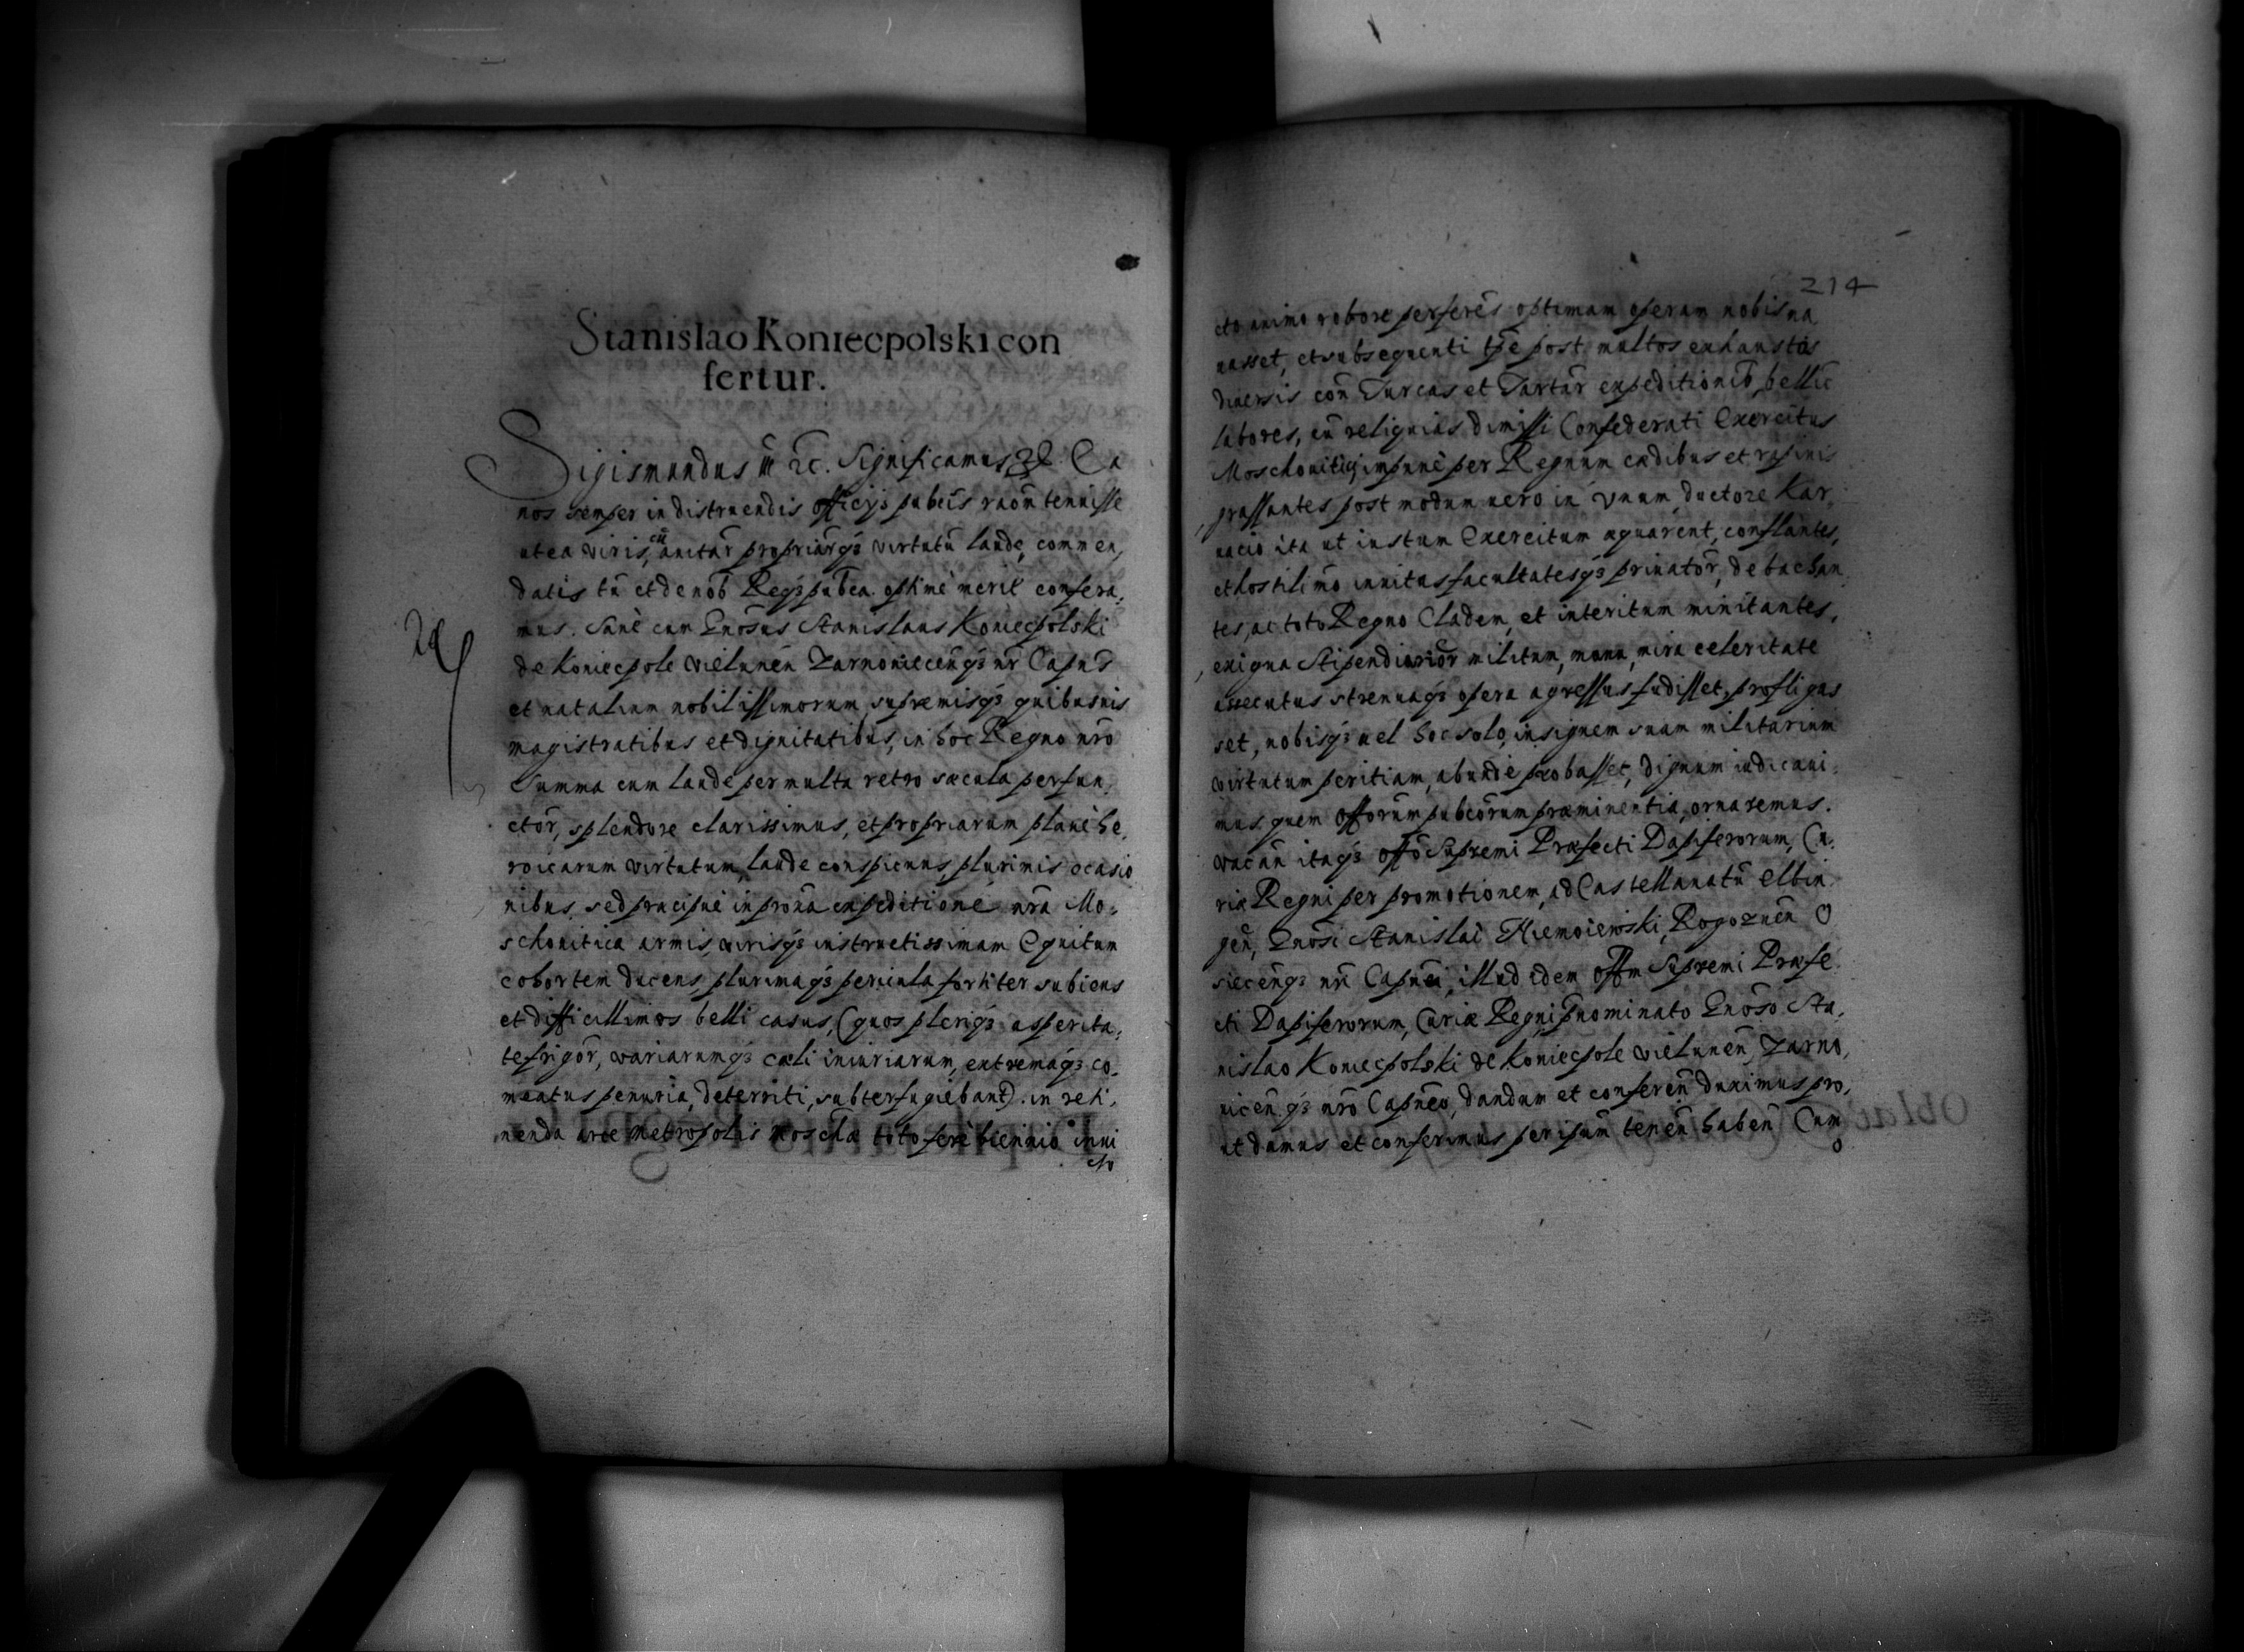 Stanislao Koniecpolski con
fertur.
Sigismundus III etc. Significamus Ea
nos semper in distruendis officijs publcis raōn tenuisse
ut ea viris, cū auitar̄ propriarq̃ȝ virtutū laude, commen,
datis tū et de nob̄ Reǵȝ pub̄ca optimè merit̄ confera,
mus. Sanè cum Gnosus Stanislaus Koniecpolski
de Koniecpole Vielunen̄ Zarnoviecen̄qȝ nr̄ Capn̄s
et natalium nobilissimorum, supremisqȝ quibusuis
magistratibus et dignitatibus, in hoc Regno nr̄o
Summa cum laude per multa retro sæcula perfun,
ctor̄, splendore clarissimus, et propriarum planè he,
roicarum virtutum, laude conspicuus, plurimis ocasio
nibus, sed præcipuè in prona expeditione nr̄a Mo,
schouitica armis, virisqȝ instructissimam Equitum
cohortem ducens, plurimaqȝ pericula fortiter subiens
et difficillimos belli casus, (quos pleriqȝ asperita,
te frigor̄, variarumqȝ cæli iniuriarum, extremaqȝ co,
meatus penuria, deterriti, subterfugiebant). in reti,
nenda arce Metropolis Moschæ toto ferè biennio inui
cto
214
cto animo robore perferēs optimam operam nobis na
uasset, et subsequenti tp̄e post multos exhaustos
diuersis con̄ Turcas et Tartar̄ expeditionib̄ bellic̄
labores, cū reliquias dimissi Confederati Exercitus
Moschouitici, impunè per Regnum cædibus et rapinis
grassantes, post modum uero in vnum, ductore Kar,
uacio ita ut iustum Exercitum æquarent, conflantes,
et hostili m̄o inuitas facultatesqȝ priuator̄, debachan
tes, ac toto Regno Cladem, et interitum minitantes,
exigua Stipendiarior̄ militum, manu, mira celeritate
assecutus strenuaqȝ opera agressus fudisset, profligas
set, nobisqȝ uel hoc solo, insignem suam militarium
virtutum peritiam, abundè probasset, dignum iudicaui,
mus, quem offorūm pubcōrum præminentia, ornaremus.
Vacan̄ itaqȝ offō Supremi Præfecti Dapiferorum, Cu,
riæ Regni per promotionem, ad Castellanatū Elbin
gen̄, Gnosi Stanislai Niemoiewski, Rogoznen̄ O
siecen̄qȝ nr̄i Capnei, illud idem offm Supremi Præfe
cti Dapiferorum, Curiæ Regni, p̄nominato Gnoso Sta,
nislao Koniecpolski de Koniecpole Vielunen̄, Zarno,
uicen̄qȝ nr̄o Capneo, dandum et conferen̄ duximus pro,
ut damus et conferimus per ipsūm tenen̄ haben̄ Cum
o